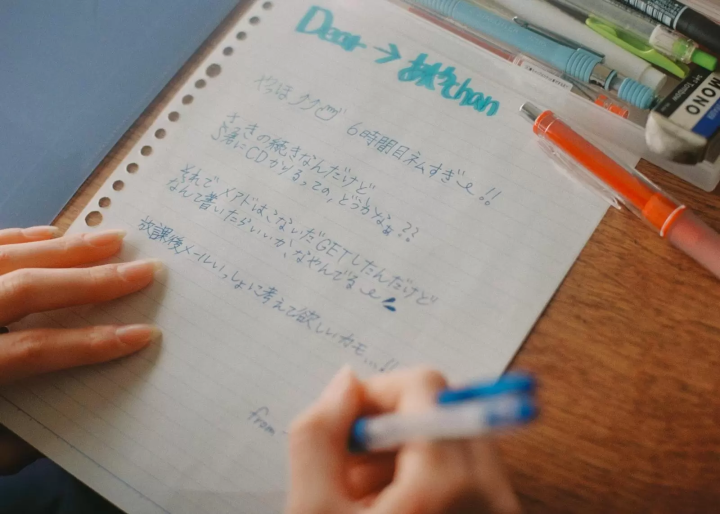 Dear → あずchan
やっほ ククク 6時間目ネムすぎ〜!!
さっきの続きなんだけど
S君にCDかりるっての、どうかなぁ??
それで、メアドはこないだGETしたんだけど
なんて書いたらいいか、なやんでる〜
放課後メールいっしょに考えて欲しいカモ…!!
from
MONO
Tombow